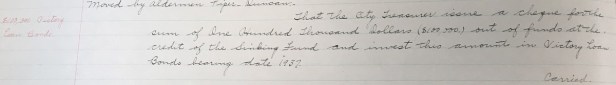 Moved by Aldermen Piper Duncan.
$100,000 Victory
Loan Bonds
That the City Treasurer issue a cheque for the
sum of One Hundred Thousand Dollars ($100,000.) out of funds at the
credit of the Sinking Fund and invest this amount in Victory Loan
Bonds bearing date 1937.
Carried